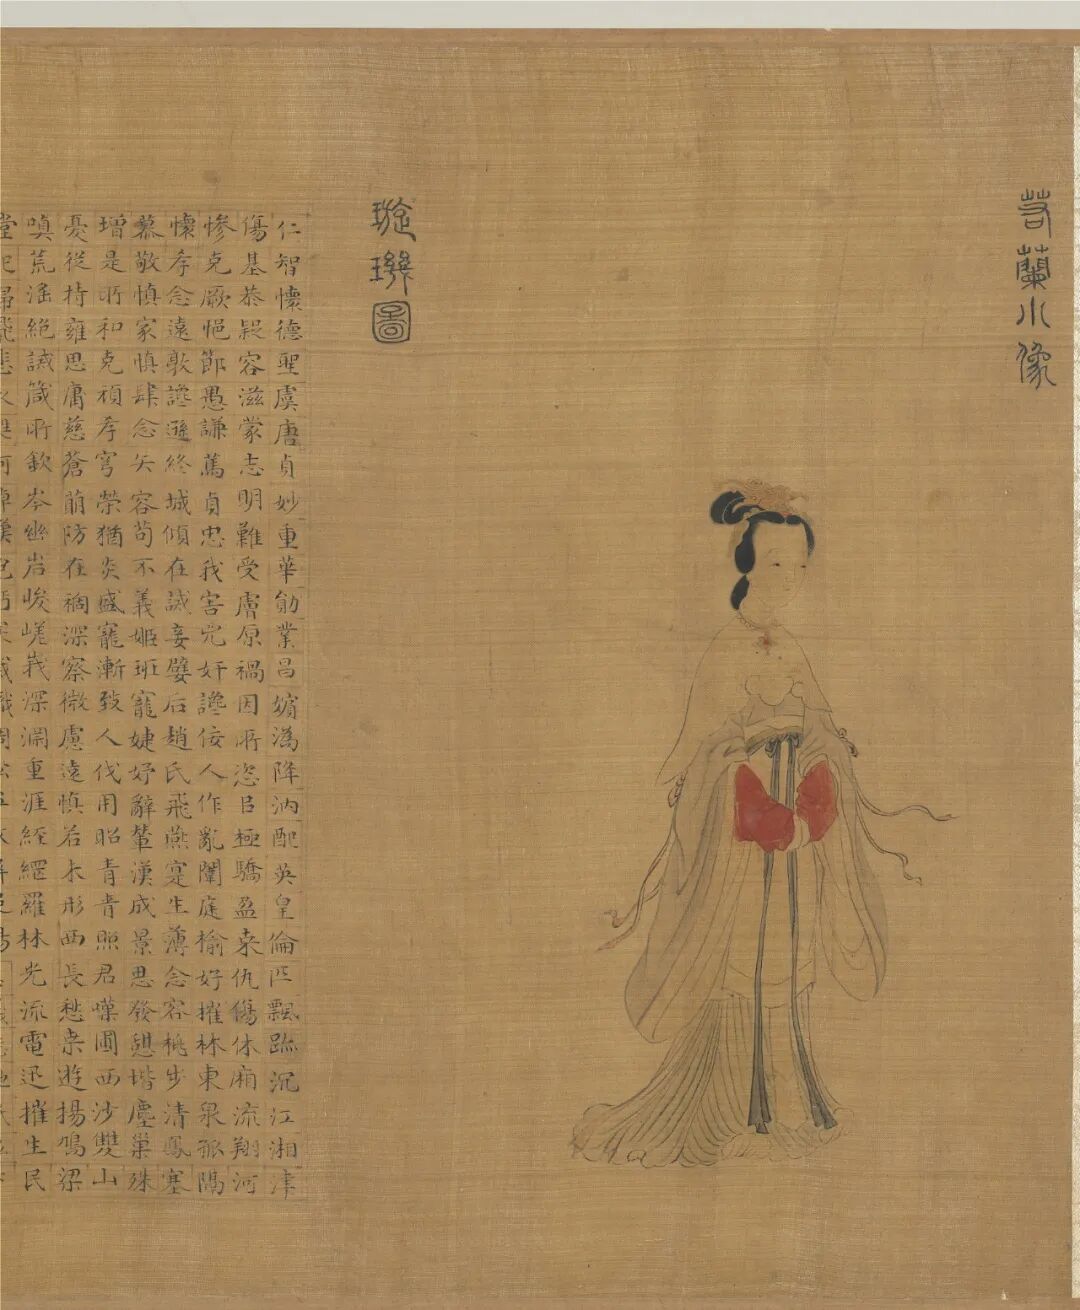 若蘭小像
璇璣圖
仁智懷德聖虞唐貞妙重華勛業昌嬪溈降汭配英皇倫匹飄跡沉江湘津
傷基恭叚容滋蒙志明難受膚原禍因所恣臣極驕盈桒仇傷休廂流翔河
慘克厥悒節愚謙篤貞忠我害兇奸讒佞人作亂闈庭榆好摧林東泉孤隔
懷孝念遠敦讒遜終城傾在誡妾嬖后趙氏飛燕寔生薄念容桃步清鳳塞
慕敬慎家慎肆念矢容苟不義姬班寵婕妤辭輦漢成景思發愬堦塵巢殊
增是所和克禎孝穹榮猶炎盛寵漸致人伐用昭青青照君嘆圃西沙雙山
憂從持雍思庸慈蒼萌防在禍深察微慮遠慎若木形西長愁桒遊揚鳴梁
嗔荒淫絕誡箴所欽岑幽岩峻嵯峩深淵重涯經網羅林光流電迅摧生民